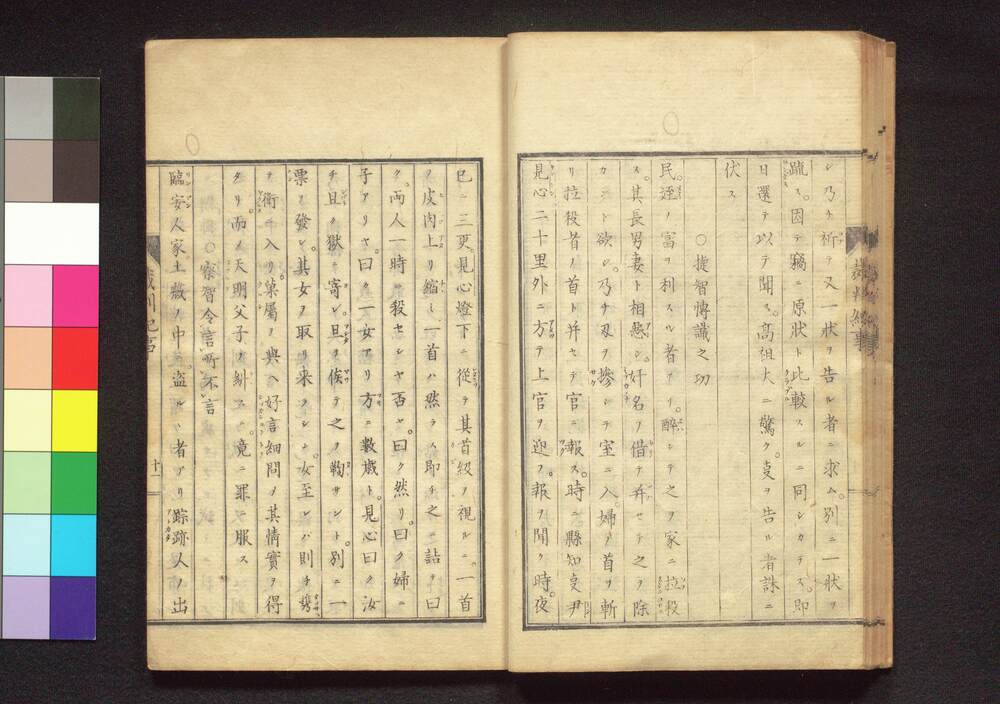 シ乃チ祈テ又一状ヲ告ル者ニ求ム。別ニ一状ヲ
疏ス。因テ竊ニ原状ト比較スルニ同シカラス。即
日選テ以テ聞ス。高祖大ニ驚ク。支ヲ告ル者誅ニ
伏ス
○捷智博識之功
民逕ノ富ヲ利スル者アリ。醉シテ之ヲ家ニ拉殺
ス。其長男妻ト相慫シ。奸名ヲ借テ并セテ之ヲ除
カント欲シ。乃チ刃ヲ摻シテ室ニ入。婦ノ首ヲ斬
リ拉殺者ノ首ト并セテ官ニ報ス。時ニ縣知支尹
見心二十里外ニ方テ上官ヲ迎フ。報ヲ聞ク時。夜
已ニ三更。見心燈下ニ從テ其首級ヲ視ルニ。一首
ハ皮肉上リ縮ミ一首ハ然ラス即チ之ニ詰テ曰
ク。両人一時ニ殺セシヤ否ヤ。曰ク然リ。曰ク婦ニ
子アリヤ。曰ク一女アリ方ニ數歳ト。見心曰ク汝
チ且ク獄ニ寄シ。旦ヲ俟テ之ヲ鞠サント。別ニ一
票ヲ發シ。其女ヲ取リ来ラシム。女至レバ則チ携
テ衙ニ入リ。菓属ヲ與ヘ好言細問ノ其情實ヲ得
タリ而ノ天明父子ヲ糾スニ。竟ニ罪ニ服ス
○察智令言所不言
臨安人家土敖ノ中ニ盗ルヽ者アリ踪跡人ノ出
十一